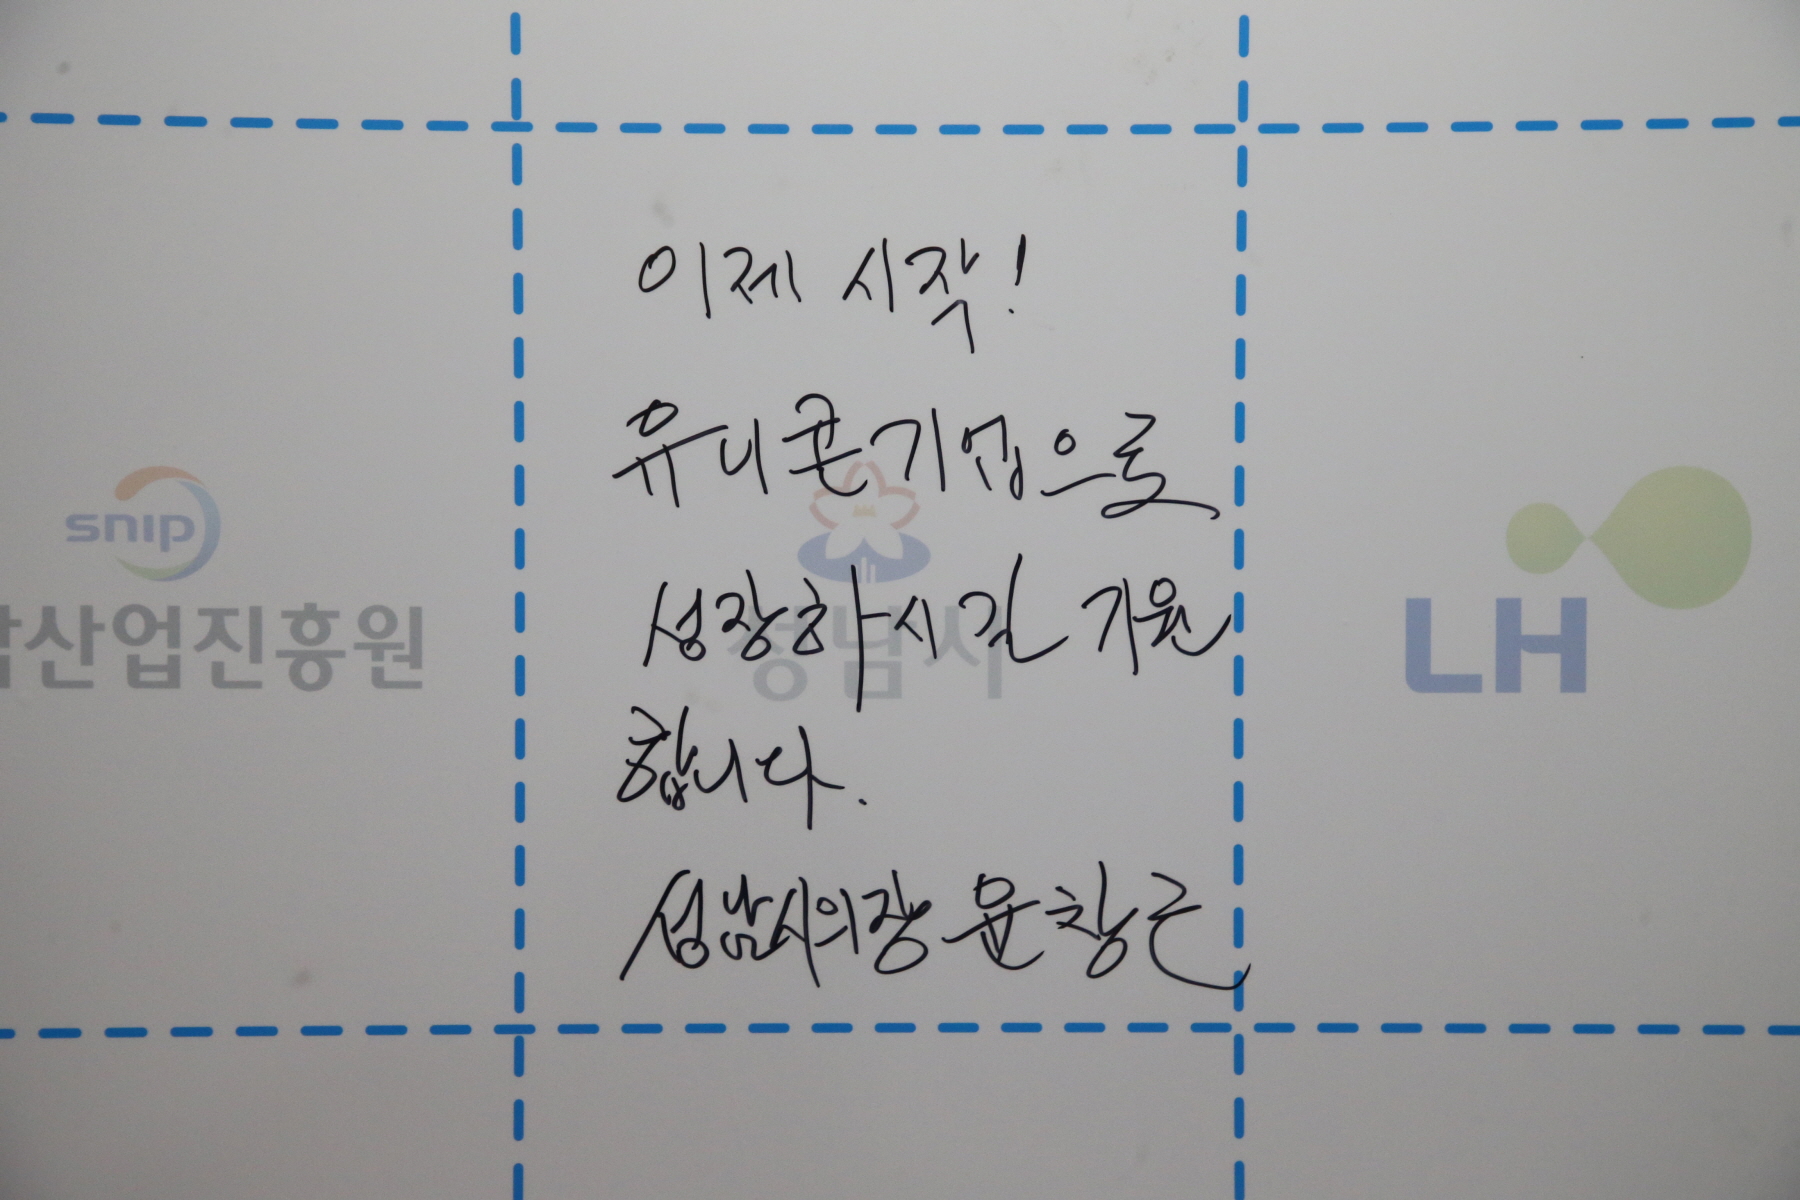 이제 시작!
유니콘기업으로
성장하시길 기원
합니다.
성남시의장 윤창근
snip
남산업진흥원
성남시
LH